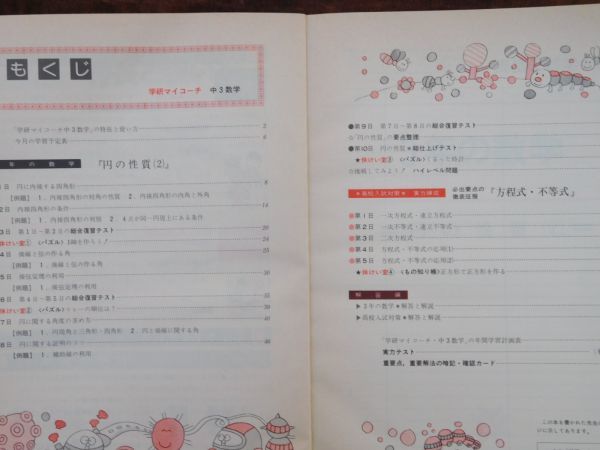 もくじ
学研マイコーチ 中3数学
「学研マイコーチ中3数学」の特長と使い方 2
今月の学習予定表 6
年の数学 『円の性質(2)』
1日 円に内接する四角形 8
【例題】 1. 内接四角形の対角の性質 2. 内接四角形の内角と外角
2日 内接四角形の条件 14
【例題】 1. 内接四角形の判別 2. 4点が同一円周上にある条件
3日 第1日〜第2日の総合復習テスト 20
休けい室① 〈パズル〉 24
4日 接線と弦の作る角 25
【例題】 1. 接線と弦の作る角
5日 接弦定理の利用 30
【例題】 1. 接弦定理の利用
6日 第4日〜第5日の総合復習テスト 35
休けい室② 〈パズル〉
7日 円に関する角度の求め方
【例題】 1. 円周角と三角形・四角形 2. 円と接線に関する角
8日 円に関する証明の
【例題】 1. 補助線の利用
●第9日 第7日〜第8日の総合復習テスト
☆「円の性質」の要点整理
●第10日 円の性質★総仕上げテスト
★休けい室③ 〈パズル〉くるった時計
☆挑戦してみよう! ハイレベル問題
★高校入試対策★ 実力練成 必出要点の徹底征服 『方程式・不等式』
●第1日 一次方程式・連立方程式
●第2日 一次不等式・連立不等式
●第3日 二次方程式
●第4日 方程式・不等式の応用(1)
●第5日 方程式・不等式の応用(2)
★休けい室④ 〈もの知り帳〉正方形で正方形を作る
解答編
▶3年の数学★解答と解説
▶高校入試対策★解答と解説
「学研マイコーチ・中3数学」の年間学習計画表
実力テスト
重要点,重要解法の暗記・確認カード
この本を書かれた先生
に示してあります。